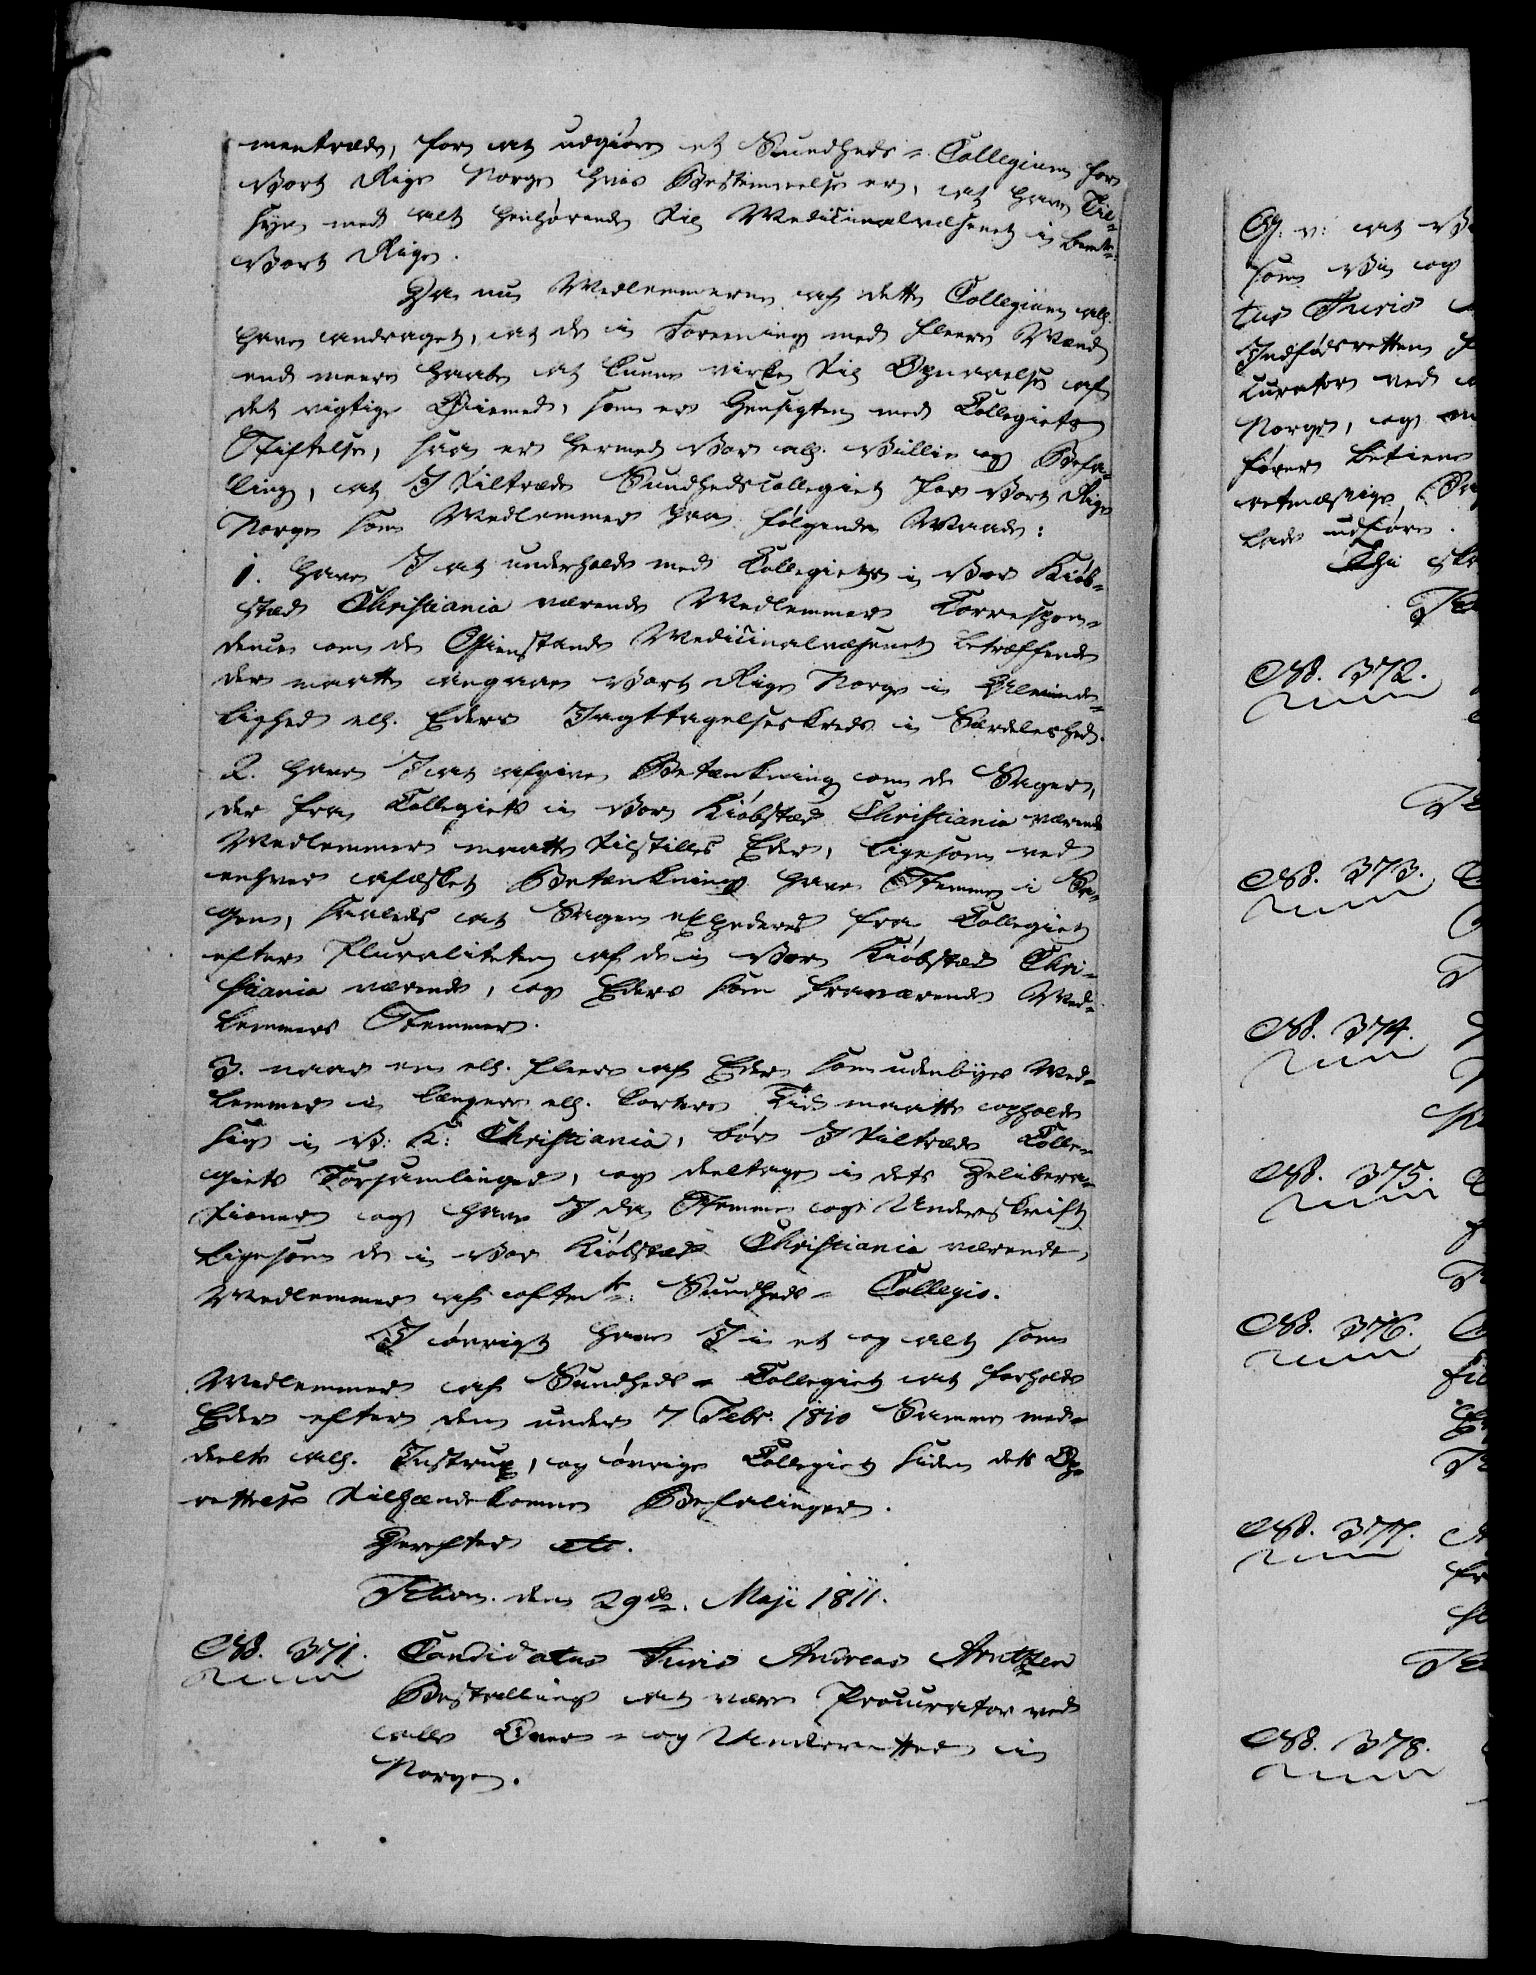 mentræde, for at udgiøre et Sundheds-Collegium for
Vort Rige Norge hvis Bestemmelse er, at have Til-
syn med alt henhørende til Medicinalvæsenet i bemte:
Vort Rige.
Da nu Medlemmerne af dette Collegium all.
have andraget, at de i Foreening med fleere Mænd
end meere haabe at kunne virke til Opnaaelse af
det vigtige Øiemed, som er Hensigten med Collegiets
Stiftelse, saa er hermed Vor all. Villie og Befa-
ling, at I tiltræde Sundhedscollegiet for Vort Rige
Norge som Medlemmer paa følgende Maade:
1. have I at underholde med Collegiets i Vor Kiøb-
stæd Christiania værende Medlemmer Correspon-
dence om de Gienstande Medicinalvæsenet betræffende
der maatte angaae Vort Rige Norge i Alminde-
lighed ell. Eders Iagttagelseskreds i Særdeleshed.
2. have I at afgive Betænkning om de Sager,
der fra Collegiets i Vor Kiøbstæd Christiania værende
Medlemmer maatte tilstilles Eder, ligesom ved
enhver afæsket Betænkning have Stemme i Sa-
gen, saaledes at Sagen expederes fra Collegiet
efter Pluraliteten af de i Vor Kiøbstæd Chri-
stiania værende, og Eders som fraværende Med-
lemmers Stemmer.
3. naar en ell. fleere af Eder som udenbyes Med-
lemmer i længere ell. kortere Tid maatte opholde
sig i V: K: Christiania, bør I tiltræde Colle-
giets Forsamlinger, og deeltage i dets Delibera-
tioner og have I da Stemme og Underskrift
ligesom de i Vor Kiøbstæd Christiania værende
Medlemmer af ofte bte: Sundheds-Collegio.
I øvrigt have I i et og alt som
Medlemmer af Sundheds-Collegiet at forholde
Eder efter den under 7 Febr. 1810 Samme med-
deelte all. Instrux, og øvrige Collegiet siden dets Op-
rettelse tilhændekomne Befalinger.
Derefter etc.
Fbhrn. den 29de. Maji 1811.
No. 371. Candidatus Juris Andreas Arntzen
Bestalling at være Procurator ved
alle Over- og Underretter i
Norge.
G. v: at V
som Vi og
tus Juris
Indfødsretten
curator ved
Norge, og
fører betiene
retmæssige
lade udføre.
Thi
No. 372.
No. 373.
No. 374.
No. 375.
No. 376.
No. 377.
No. 378.